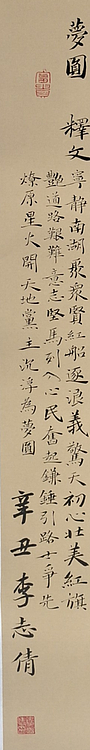 夢圓
釋文
寧靜南湖聚眾賢紅船逐浪義驚天初心壯美紅旗
艷道路艱難意志堅馬列入心民奮起鎌錘引路士爭先
燎原星火開天地黨主沉浮為夢圓
辛丑李志倩